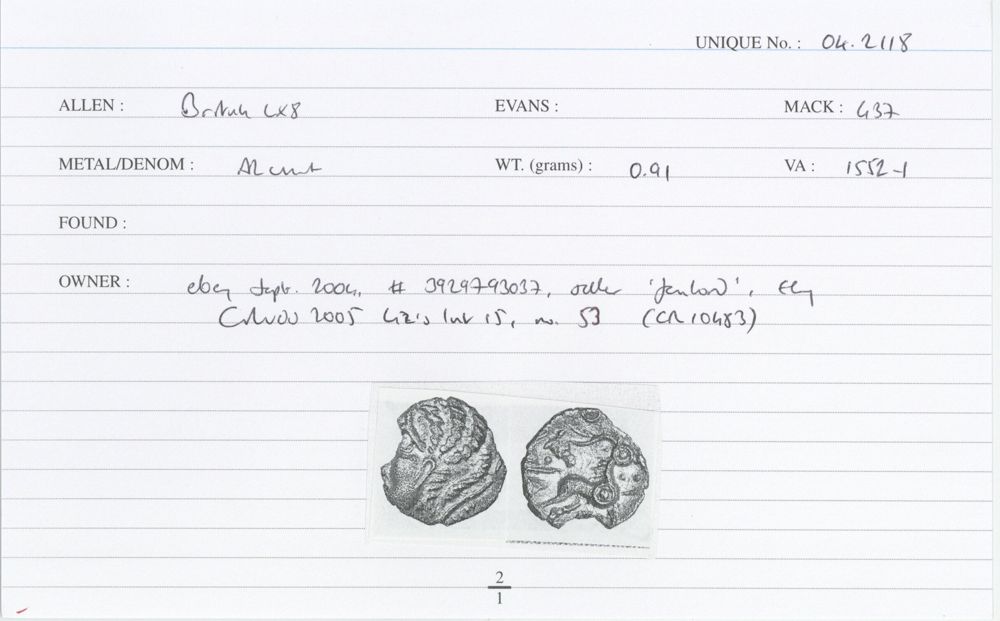 UNIQUE No. : 04.2118
ALLEN : British LX8 EVANS : MACK : 437
METAL/DENOM : AR unit WT. (grams) : 0.91 VA : 1552-1
FOUND :
OWNER : ebay Sept. 2004, # 3929793037, seller Ely
2005 15, no. 53 (CR 10483)
2
1